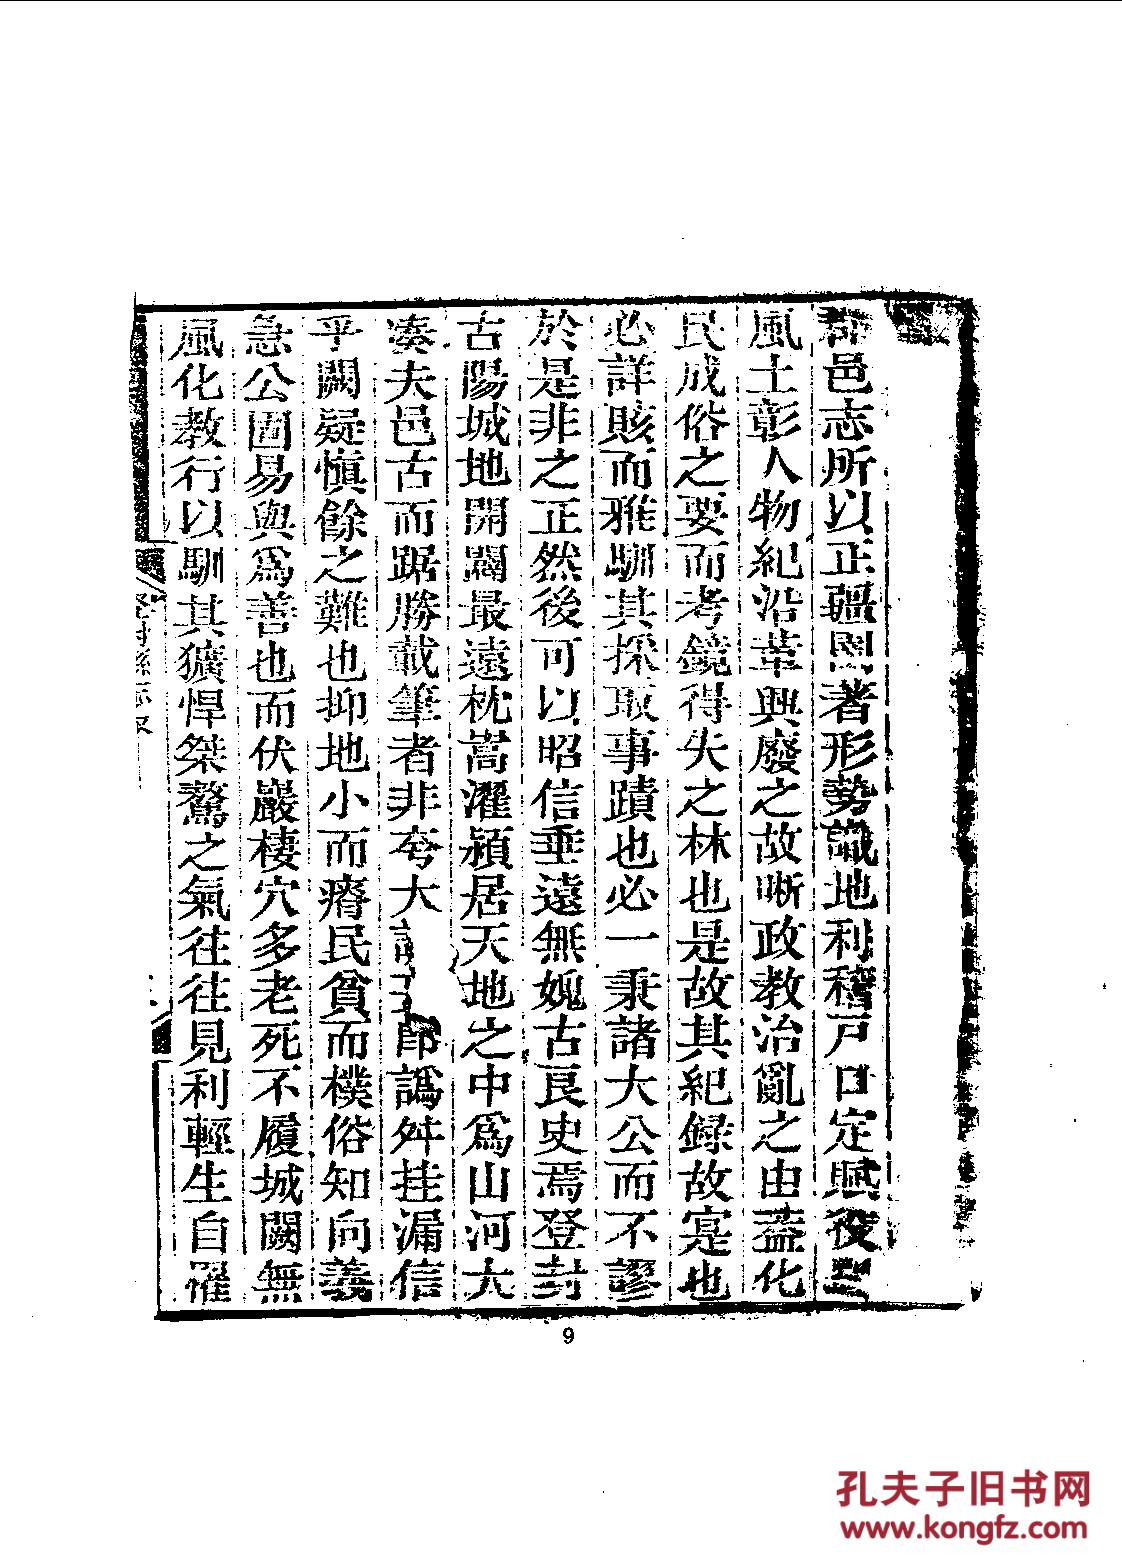 郡邑志所以正疆圉著形勢識地利稽戸口定賦役
風土彰人物紀沿革興廢之故晰政教治亂之由葢化
民成俗之要而考鏡得失之林也是故其紀録故寔也
必詳賅而雅馴其採取事蹟也必一秉諸大公而不謬
於是非之正然後可以昭信垂遠無媿古良史焉登封
古陽城地開闢最遠枕嵩濯潁居天地之中爲山河大
凑夫邑古而踞勝載筆者非夸大卽譌舛挂漏信
乎闕疑慎餘之難也抑地小而瘠民貧而樸俗知向義
急公固易與爲善也而伏巖棲穴多老死不履城闕無
風化教行以馴其獷悍桀驁之氣往往見利輕生自罹
登封縣志
9
孔夫子旧书网
www.kongfz.com